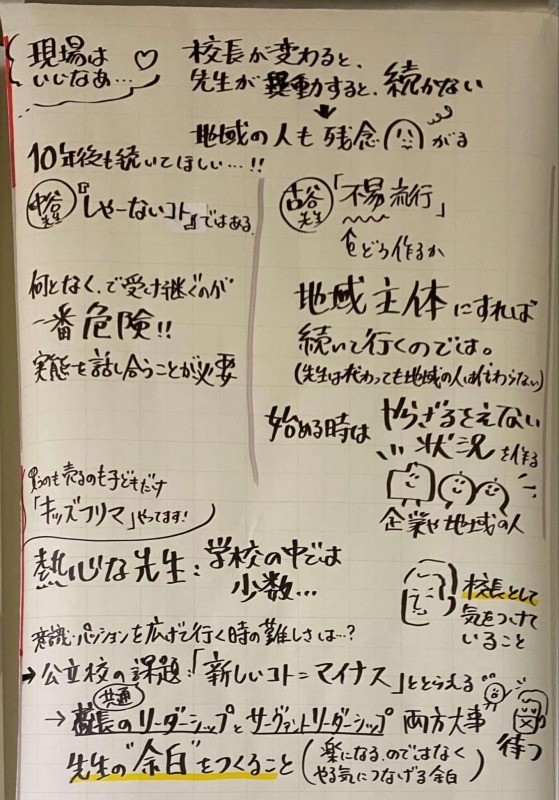 現場は
いいなあ…
校長が変わると、
先生が異動すると、続かない
地域の人も残念がる
10年後も続いてほしい…!!
中谷先生
『しゃーないコト』ではある
古谷先生
「不易流行」
どう作るか
何となく、で受け継ぐのが
一番危険!!
実態を話し合うことが必要
地域主体にすれば
続いて行くのでは。
(先生は代わっても地域の人は代わらない)
始める時は やらざるをえない
状況を作る
企業や地域の人
買うのも売るのも子どもだけ
「キッズフリマ」やってます!
熱心な先生:学校の中では
少数…
校長として
気をつけて
いること
意識・パッションを広げて行く時の難しさは…?
→公立校の課題:「新しいコト=マイナス」ととらえる
共通
→校長のリーダーシップとサーヴァントリーダーシップ 両方大事
待つ
先生の"余白"をつくること(楽になる、のではなく
やる気につなげる余白)